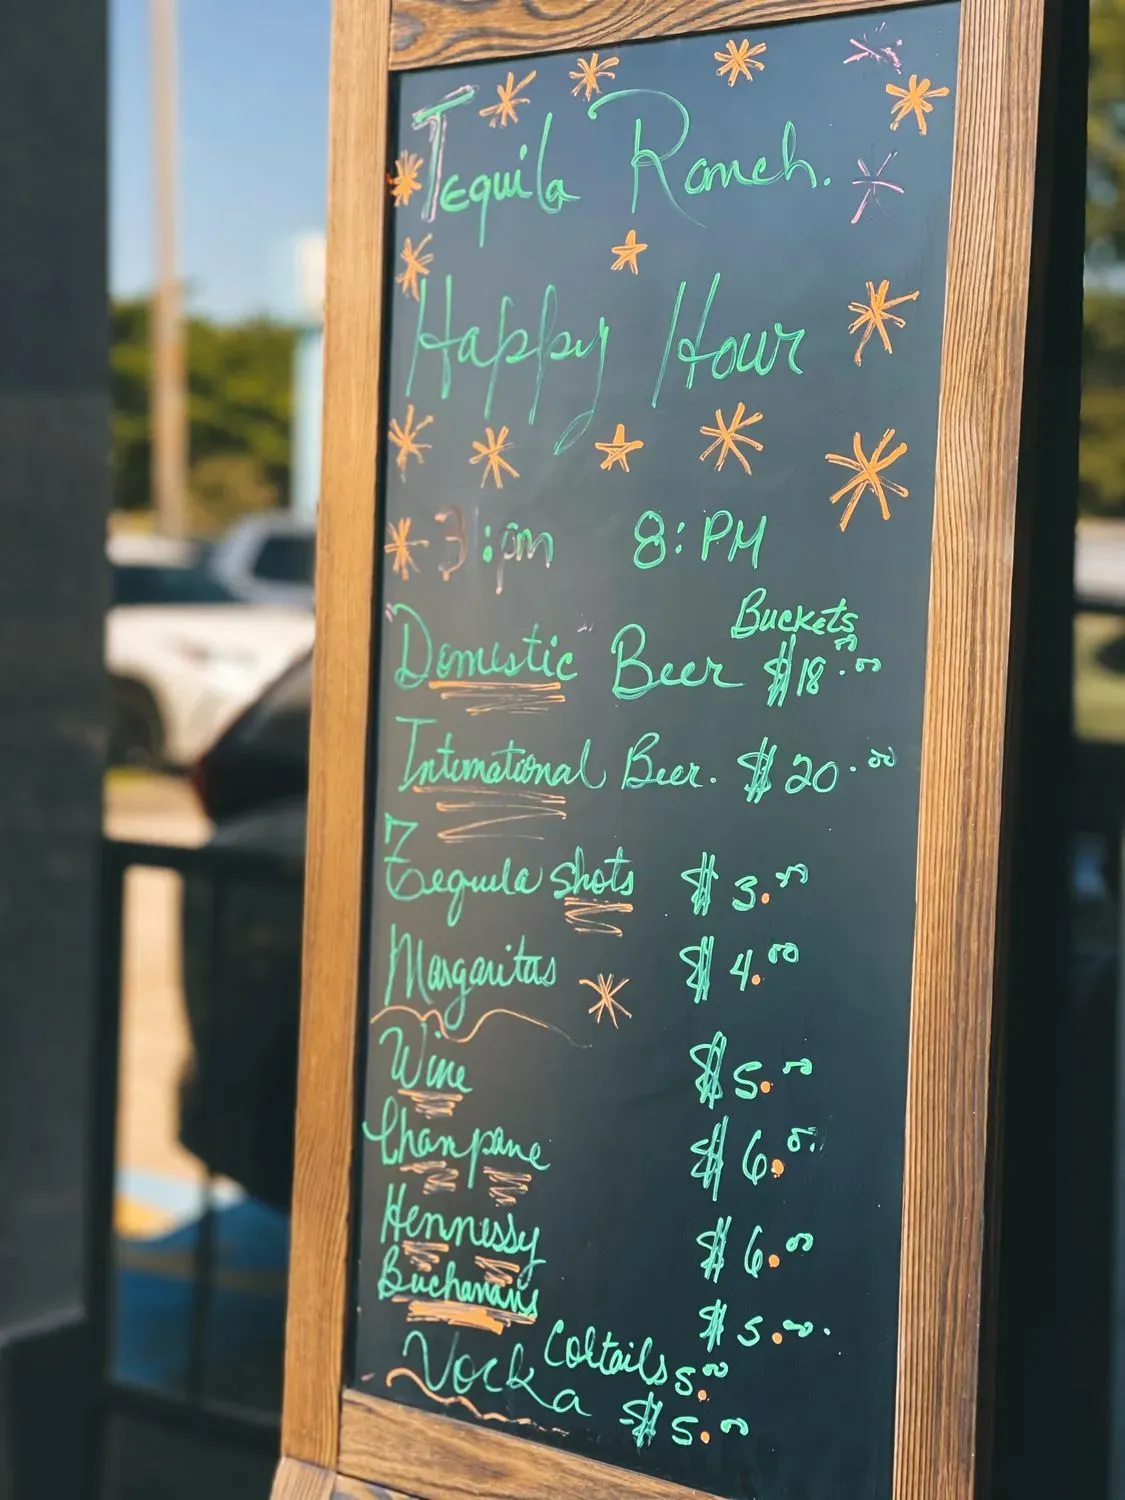 Tequila Ranch.
Happy Hour
3:pm 8:PM
Buckets
Domestic Beer $18.00
International Beer. $20.00
Tequila shots $3.00
Margaritas $4.00
Wine $5.00
Champane $6.00
Hennessy $6.00
Buchanans $5.00.
Coltails 5.00
Vocka $5.00